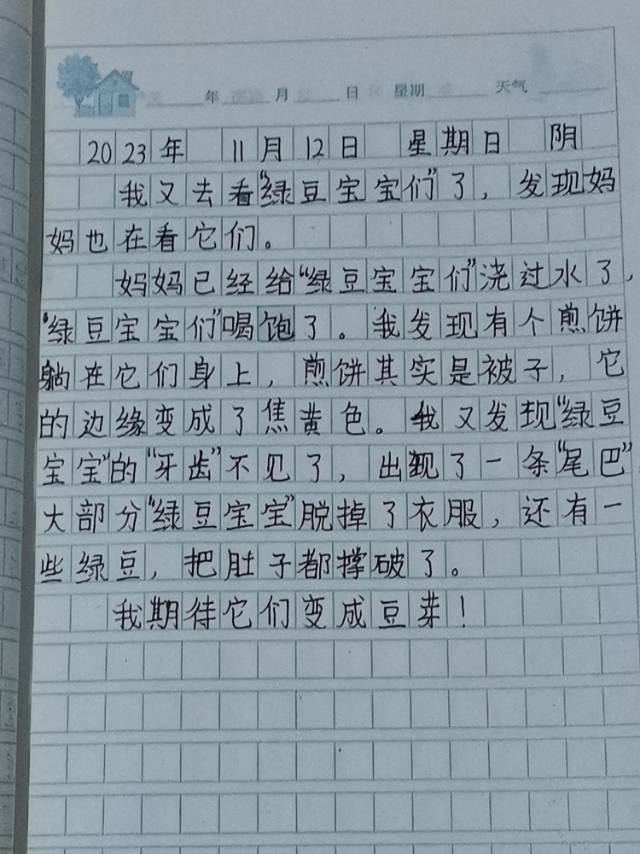 年 月 日 星期 天气
2023年 11月12日 星期日 阴
我又去看“绿豆宝宝们”了，发现妈
妈也在看它们。
妈妈已经给“绿豆宝宝们”浇过水了，
“绿豆宝宝们”喝饱了。我发现有个煎饼
躺在它们身上，煎饼其实是被子，它
的边缘变成了焦黄色。我又发现“绿豆
宝宝”的“牙齿”不见了，出现了一条“尾巴”
大部分“绿豆宝宝”脱掉了衣服，还有一
些绿豆，把肚子都撑破了。
我期待它们变成豆芽！